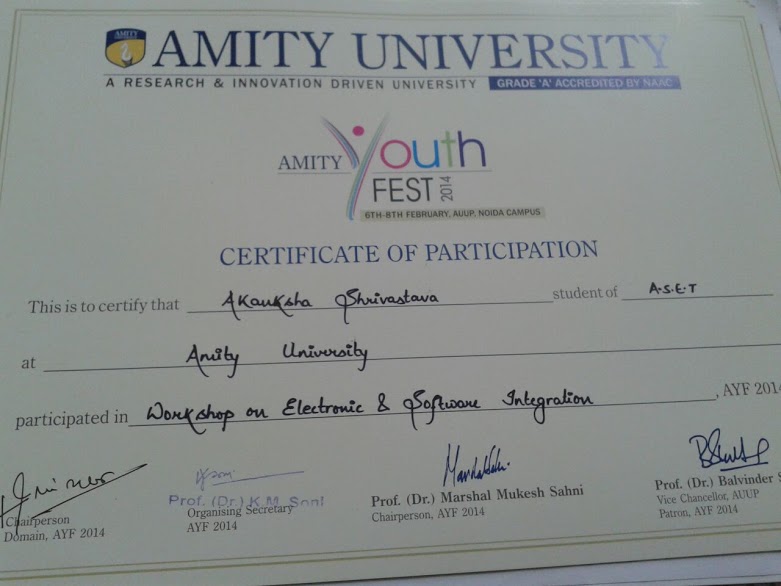 AMITY UNIVERSITY
A RESEARCH & INNOVATION DRIVEN UNIVERSITY GRADE 'A' ACCREDITED BY NAAC
AMITY Youth
FEST 2014
6TH-8TH FEBRUARY, AUUP, NOIDA CAMPUS
CERTIFICATE OF PARTICIPATION
This is to certify that Akanksha Shrivastava student of A.S.E.T
at Amity University
participated in Workshop on Electronic & Software Integration, AYF 2014
Prof. (Dr.) K.M. Soni
Chairperson
Domain, AYF 2014
Organising Secretary
AYF 2014
Prof. (Dr.) Marshal Mukesh Sahni
Chairperson, AYF 2014
Prof. (Dr.) Balvinder S
Vice Chancellor, AUUP
Patron, AYF 2014